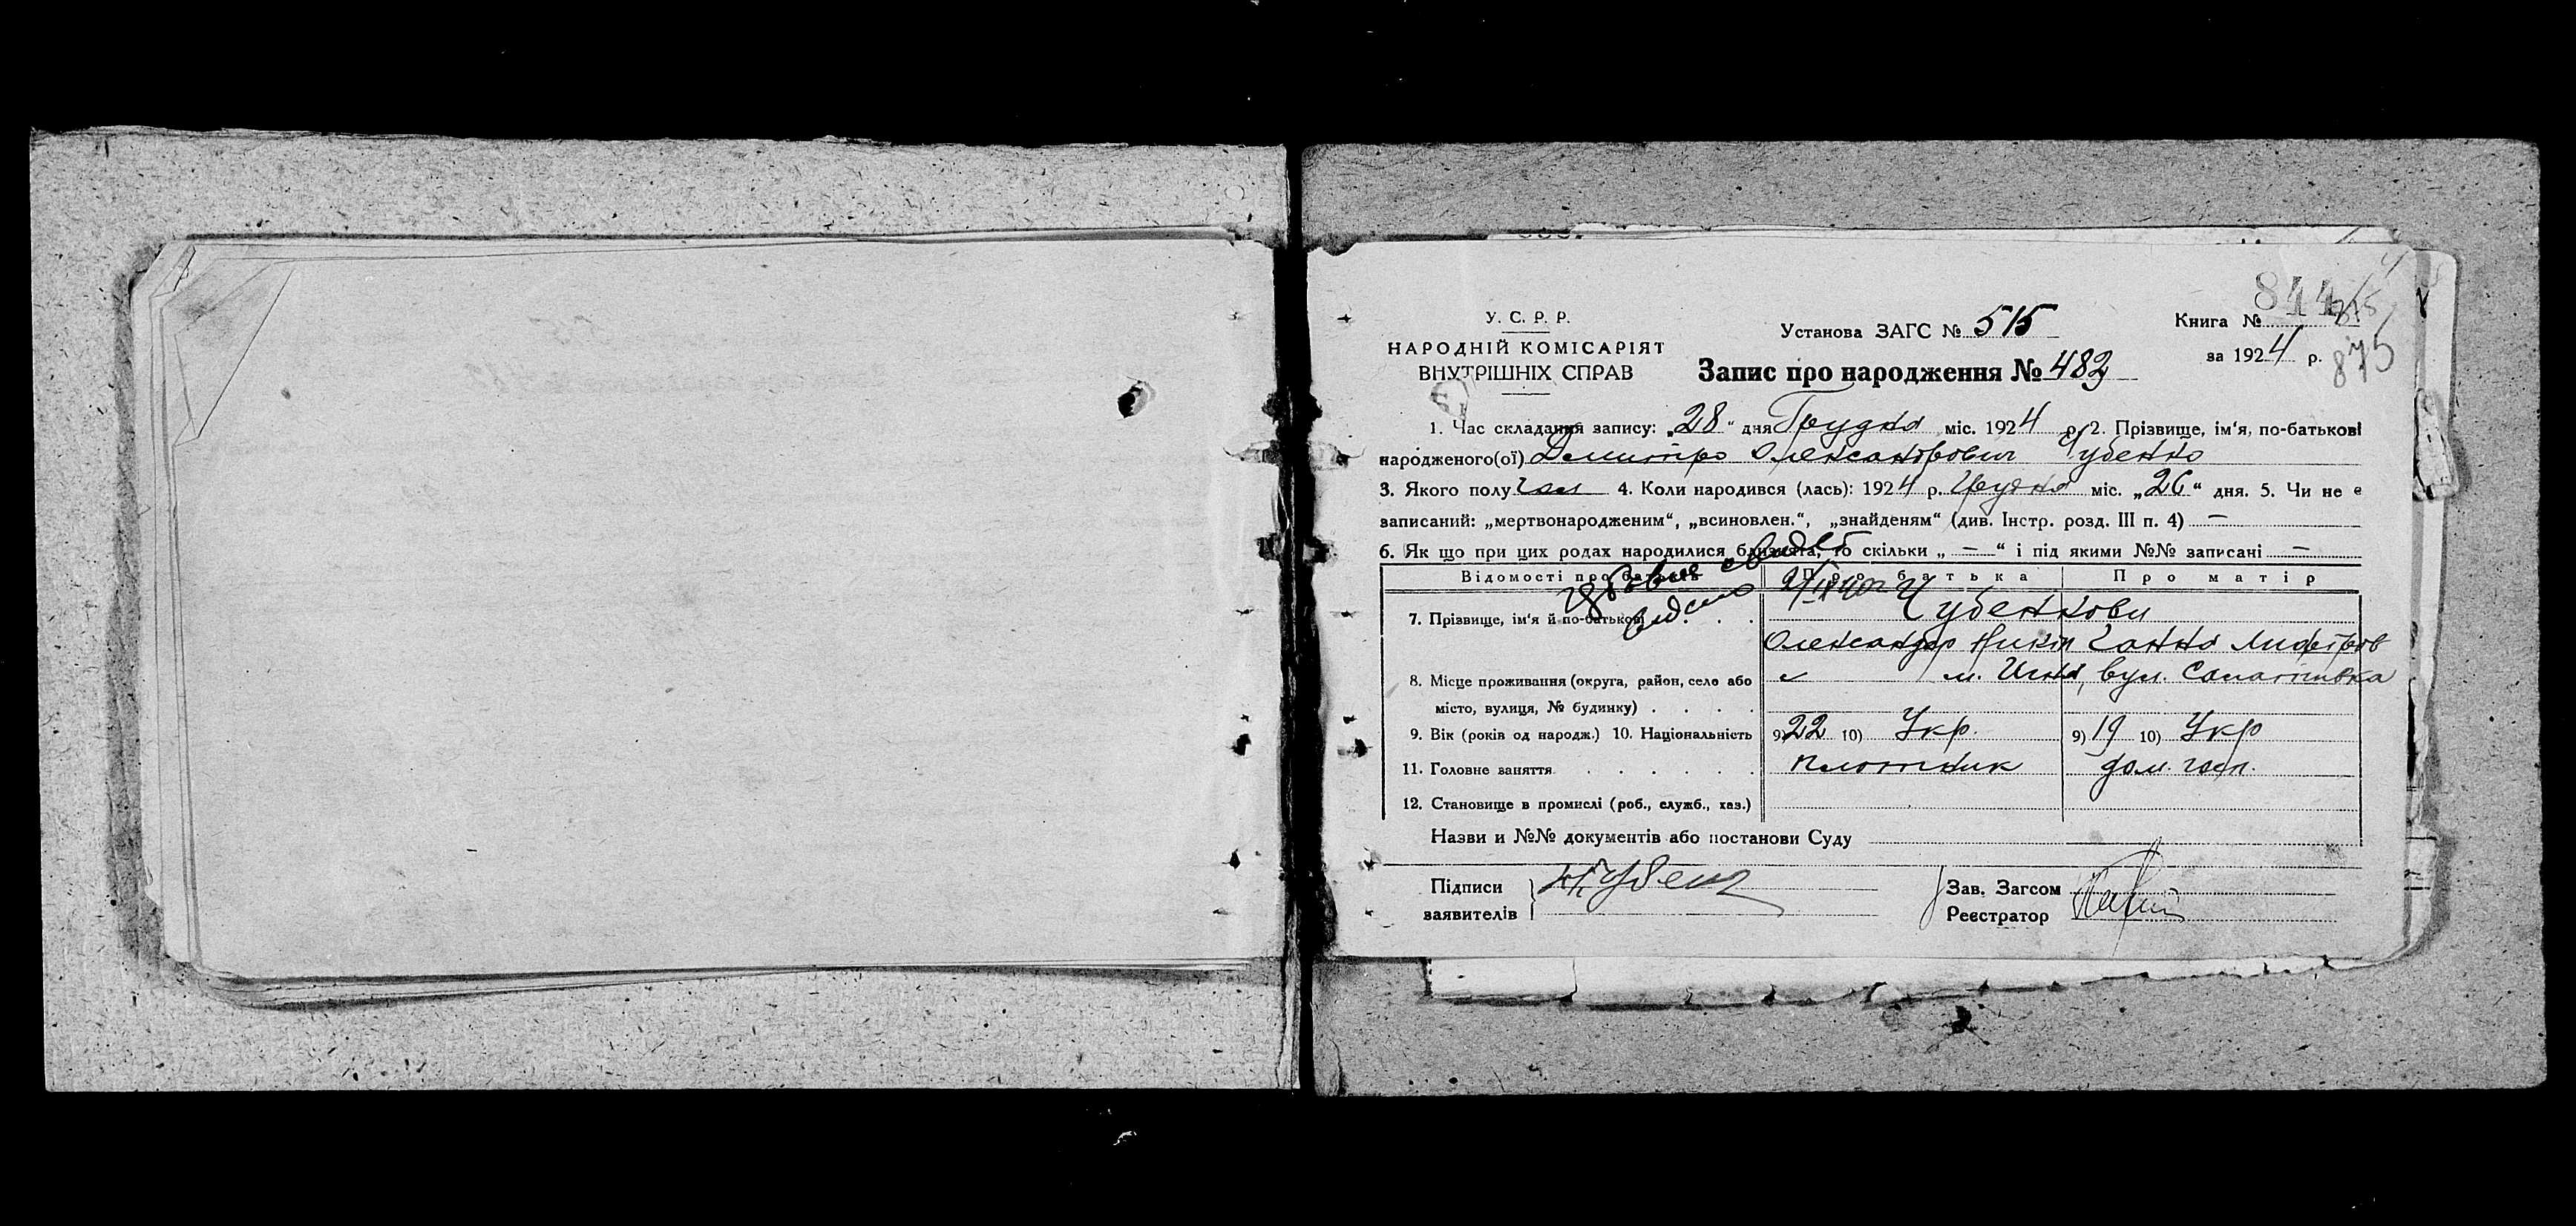 844
У. С. Р. Р.
НАРОДНІЙ КОМІСАРІЯТ
ВНУТРІШНІХ СПРАВ
Установа ЗАГС № 515
Книга №
за 1924 р.
875
Запис про народження № 482
1. Час складання запису: „28“ дня Грудня міс. 1924 р. 2. Прізвище, ім'я, по-батькові
народженого(ої) Дмитро Олександрович Чубенко
3. Якого полу чол 4. Коли народився (лась): 1924 р. Грудня міс. „26“ дня. 5. Чи не є
записаний: „мертвонародженим“, „всиновлен.“, „знайденям“ (див. Інстр. розд. III п. 4) —
6. Як що при цих родах народилися близнята, то скільки „ — “ і під якими №№ записані —
Відомості про батьків Про батька Про матір
7. Прізвище, ім'я й по-батькові . . . Чубенкови
Олександр Никіп Ганна
8. Місце проживання (округа, район, село або м. вул.
місто, вулиця, № будинку) . . . .
9. Вік (років од народж.) 10. Національність 9) 22 10) Укр. 9) 19 10) Укр
11. Головне заняття . . . . . . плотник дом. госп.
12. Становище в промислі (роб., служб., хаз.)
Назви и №№ документів або постанови Суду
Підписи
заявителів
Зав. Загсом
Реєстратор